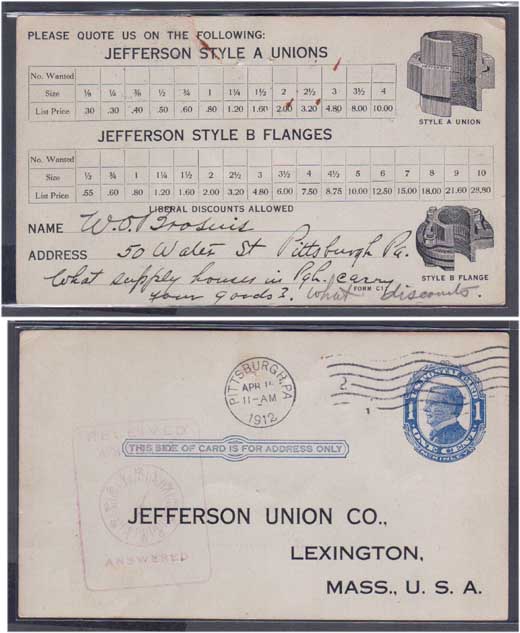 PLEASE QUOTE US ON THE FOLLOWING:
JEFFERSON STYLE A UNIONS
No. Wanted
Size ⅛ ¼ ⅜ ½ ¾ 1 1¼ 1½ 2 2½ 3 3½ 4
List Price .30 .30 .40 .50 .60 .80 1.20 1.60 2.00 3.20 4.80 8.00 10.00
STYLE A UNION
JEFFERSON STYLE B FLANGES
No. Wanted
Size ½ ¾ 1 1¼ 1½ 2 2½ 3 3½ 4 4½ 5 6 7 8 9 10
List Price .55 .60 .80 1.20 1.60 2.00 3.20 4.80 6.00 7.50 8.75 10.00 12.50 15.00 18.00 21.60 28.80
LIBERAL DISCOUNTS ALLOWED
NAME W. O. Brosius
ADDRESS 50 Water St Pittsburgh Pa.
STYLE B FLANGE
What supply houses in Pgh. carry
FORM C1
your goods? What discounts.
PITTSBURGH, PA
APR
11-AM
1912
U.S. POSTAL CARD
1 1
ONE CENT
McKINLEY
THIS SIDE OF CARD IS FOR ADDRESS ONLY
RECEIVED
ANSWERED
JEFFERSON UNION CO.,
LEXINGTON,
MASS., U. S. A.